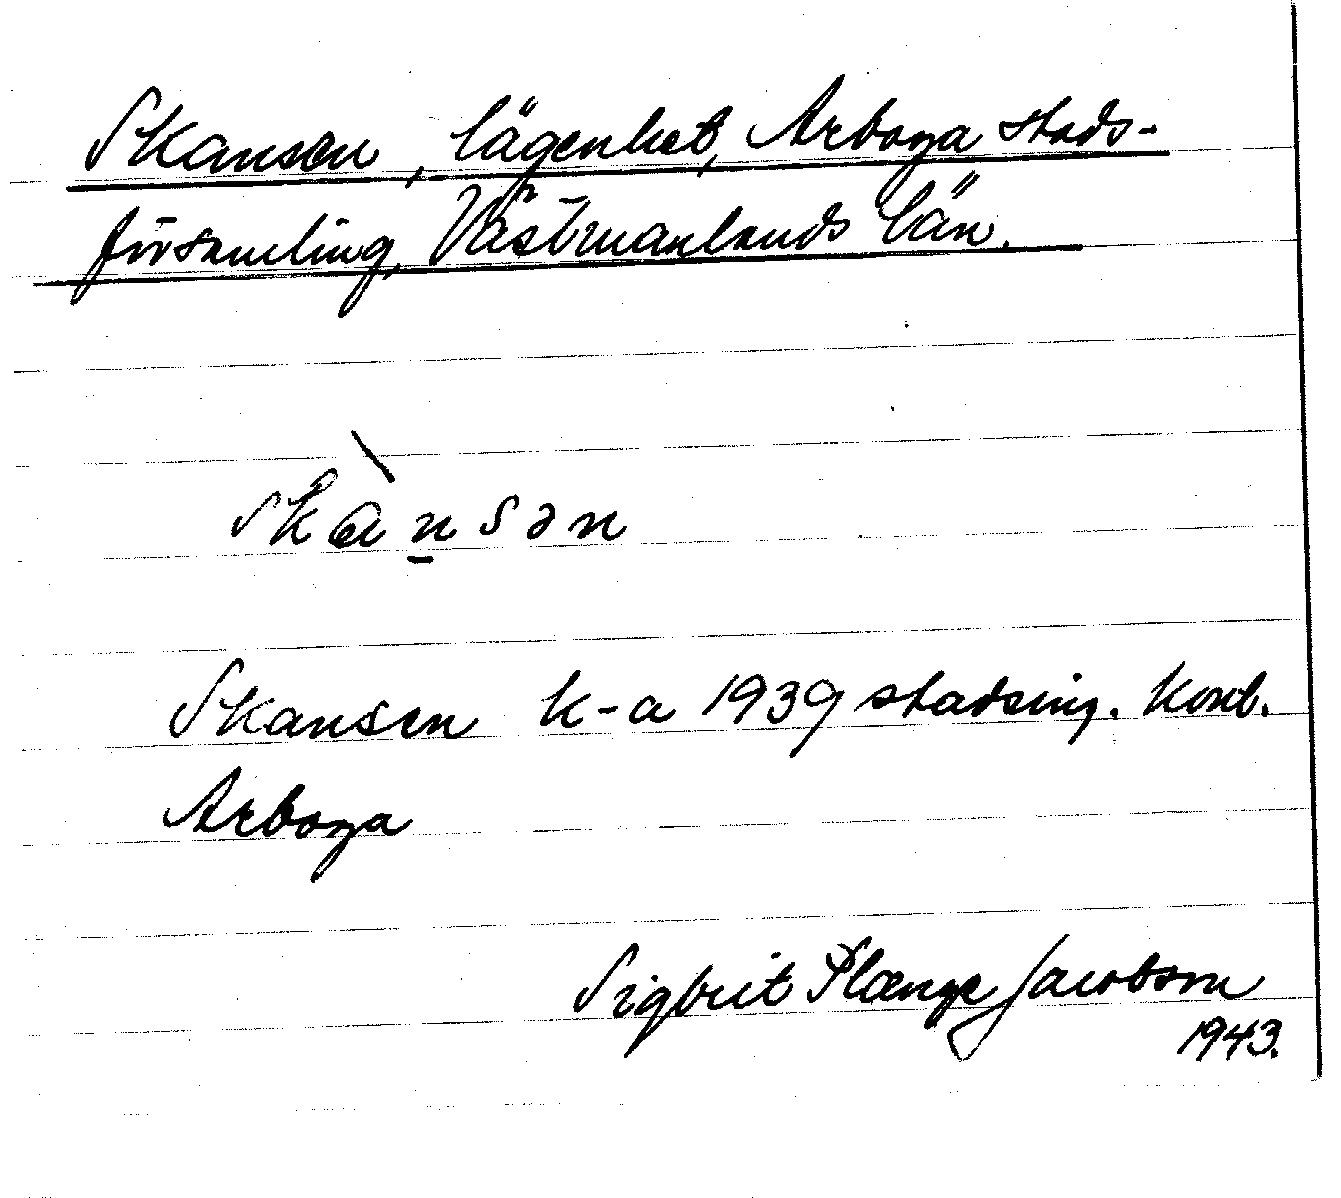 Skansen, lägenhet, Arboga stads-
församling, Västmanlands län.
skàn̠sən
Skansen k-a 1939 stadsing. kont.
Arboga
Sigbrit Plænge Jacobson
1943.